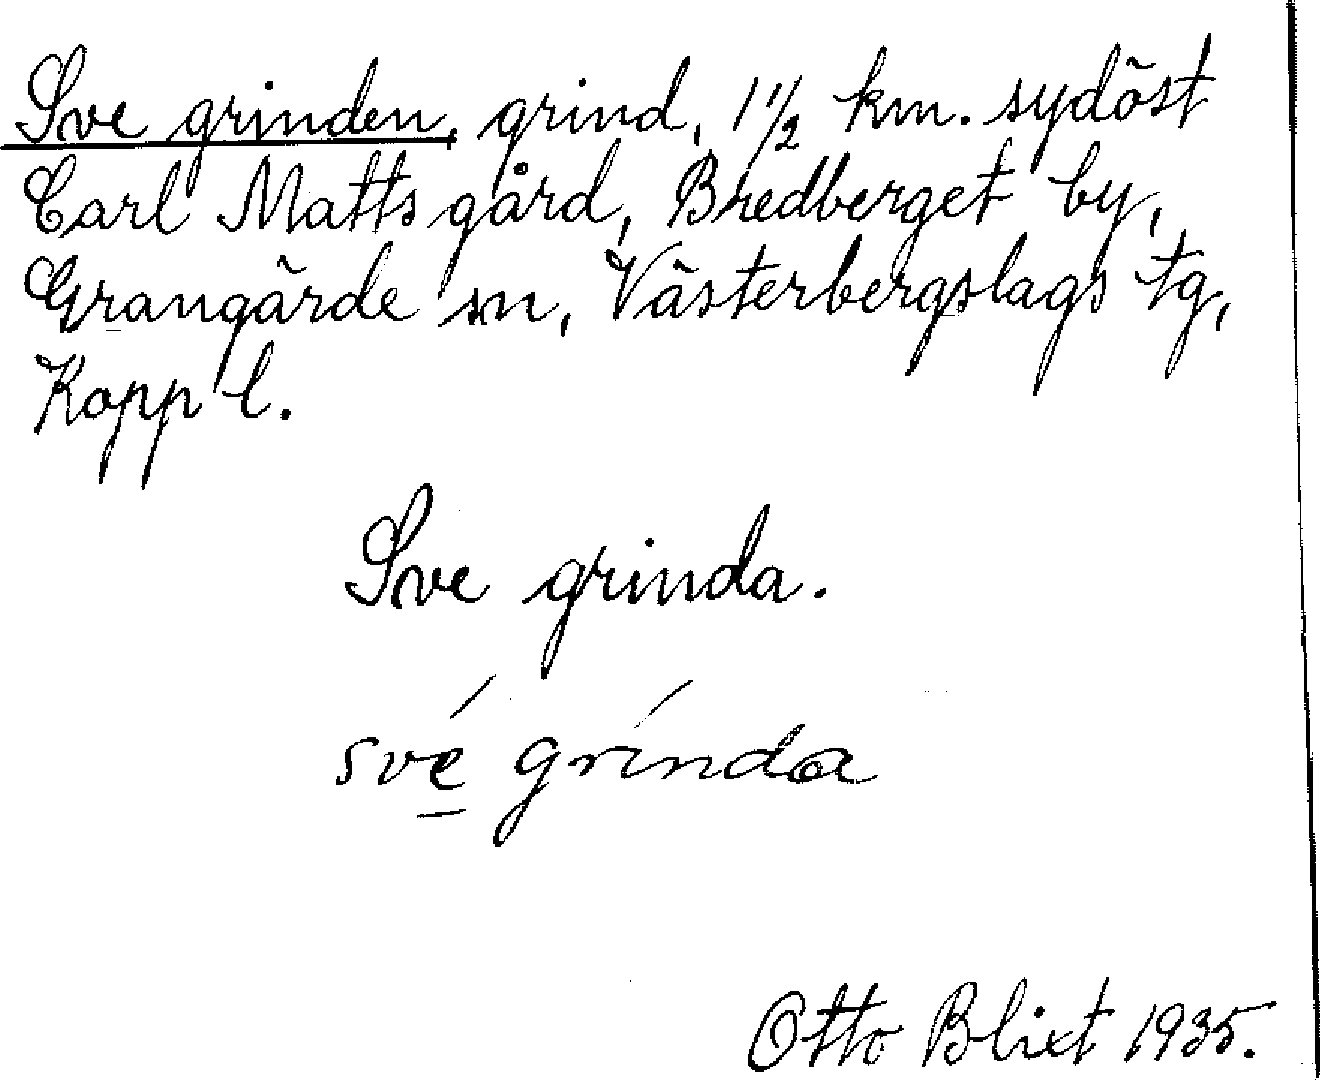 Sve grinden, grind, 1 1/2 km. sydöst
Carl Matts gård, Bredberget by,
Grangärde sn, Västerbergslags tg,
Kopp l.
Sve grinda.
své grínda
Otto Blixt 1935.